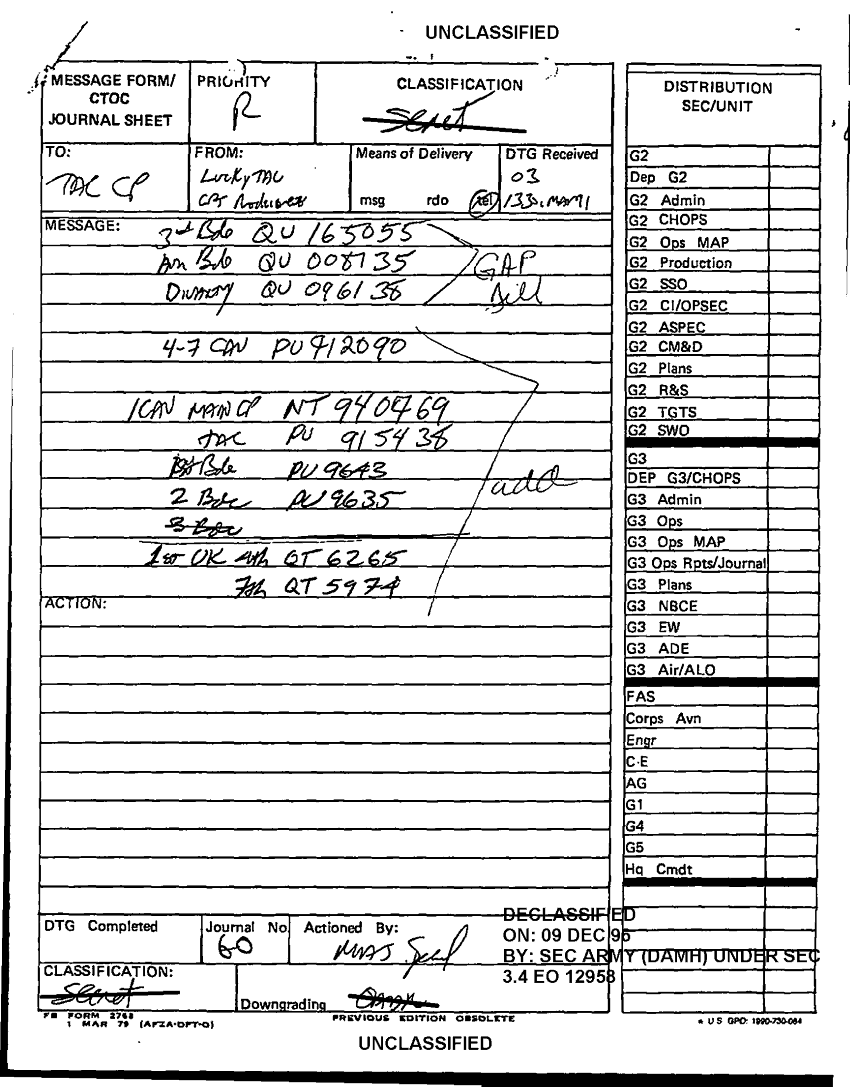 UNCLASSIFIED
MESSAGE FORM/
CTOC
JOURNAL SHEET
PRIORITY
R
CLASSIFICATION
Secret
DISTRIBUTION
SEC/UNIT
TO:
TAC CP
FROM:
Lucky TAC
CPT Rodriguez
Means of Delivery
msg rdo tel
DTG Received
03
MESSAGE:
3rd Bde QU 165055
Avn Bde QU 008735
DIVARTY QU 096138
GAP
Bill
4-7 CAV PU 912090
1CAV MAIN CP NT 940769
TAC PU 915438
1st Bde PU 9643
2 Bde PU 9635
3 Bde
add
1st UK 4th QT 6265
7th QT 5974
ACTION:
G2
Dep G2
G2 Admin
G2 CHOPS
G2 Ops MAP
G2 Production
G2 SSO
G2 CI/OPSEC
G2 ASPEC
G2 CM&D
G2 Plans
G2 R&S
G2 TGTS
G2 SWO
G3
DEP G3/CHOPS
G3 Admin
G3 Ops
G3 Ops MAP
G3 Ops Rpts/Journal
G3 Plans
G3 NBCE
G3 EW
G3 ADE
G3 Air/ALO
FAS
Corps Avn
Engr
C-E
AG
G1
G4
G5
Hq Cmdt
DTG Completed
Journal No
60
Actioned By:
MAJ
DECLASSIFIED
ON: 09 DEC 95
BY: SEC ARMY (DAMH) UNDER SEC
3.4 EO 12958
CLASSIFICATION:
Secret
Downgrading
FB FORM 2768
1 MAR 79 (AFZA-DPT-O)
PREVIOUS EDITION OBSOLETE
* U S GPO: 1990-730-084
UNCLASSIFIED